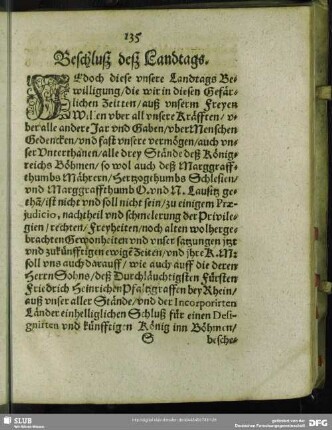 135
Beschluß deß Landtags.
JEdoch diese vnsere Landtags Be-
willigung/die wir in diesen Gefär-
lichen Zeitten/auß vnserm Freyen
Willen vber all vnsere Kräfften/v-
ber alle ander Jar vnd Gaben/vber Menschen
Gedencken/vnd fast vnsere vermögen/auch vn-
ser Vnterthanen/alle drey Stände deß König-
reichs Böhmen/so wol auch deß Marggraff-
thumbs Mährern/Hertzogethumbs Schlesien/
vnd Marggraffthumb O.vnd N. Lausitz ge-
thā/ist nicht vnd soll nicht sein/zu einigem Præ-
judicio, nachtheil vnd schmelerung der Privile-
gien/rechten/Freyheiten/noch alten wolherge-
brachten Gewonheiten vnd vnser satzungen jtzt
vnd zukünfftigen ewigē Zeiten/vnd jhre K.M:
soll vns auch darauff/wie auch auff die deren
Herrn Sohns/deß Durchläuchtigsten Fürsten
Friedrich Heinrichen Pfaltzgraffen bey Rhein/
auß vnser aller Stände/vnd der Incorporirten
Länder einhelliglichen Schluß für einen Desi-
gnirten vnd künfftigen König inn Böhmen/
S
besche-
SLUB
DFG